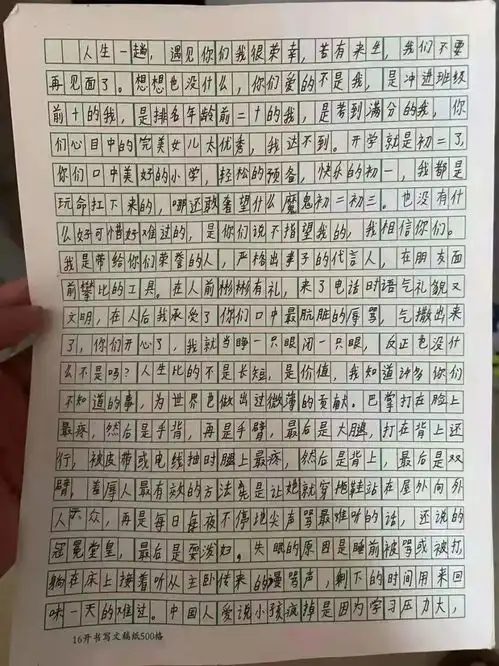 人生一趟，遇见你们我很荣幸，若有来生，我们不要
再见面了。想想也没什么，你们爱的不是我，是冲进班级
前十的我，是排名年龄前二十的我，是考到满分的我，你
们心目中的完美女儿太优秀，我达不到。开学就是初二了，
你们口中美好的小学，轻松的预备，快乐的初一，我都是
玩命扛下来的，哪还敢奢望什么魔鬼初二初三。也没有什
么好可惜好难过的，是你们说不指望我的，我相信你们。
我是带给你们荣誉的人，严格出事子的代言人，在朋友面
前攀比的工具。在人前彬彬有礼，来了电话时语气礼貌又
文明，在人后我承受了你们口中最肮脏的辱骂，气撒出来
了，你们开心了，我就当睁一只眼闭一只眼，反正也没什
么不是吗？人生比的不是长短，是价值，我知道许多你们
不知道的事，为世界也做出过微薄的贡献。巴掌打在脸上
最疼，然后是手背，再是手臂，最后是大腿，打在背上还
行，被皮带或电线抽时腿上最疼，然后是背上，最后是双
臂，羞辱人最有效的方法竟是让她就穿拖鞋站在屋外向外
人示众，再是每日每夜不停地尖声骂最难听的话，还说的
冠冕堂皇，最后是耍泼好。失眠的原因是睡前被骂或被打，
躺在床上接着听从主卧传来的谩骂声，剩下的时间用来回
味一天的难过。中国人爱说小孩疯掉是因为学习压力大，
16开书写文稿纸500格